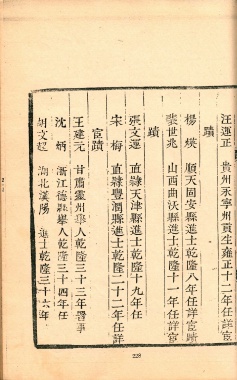 汪運正 貴州永寧州貢生雍正十二年任詳宦
蹟
楊煐 順天固安縣進士乾隆八年任詳宦蹟
裴世兆 山西曲沃縣進士乾隆十一年任詳宦
蹟
張文運 直隸天津縣進士乾隆十九年任
宋梅 直隸豐潤縣進士乾隆二十二年任詳
宦蹟
王建元 甘肅靈州舉人乾隆三十三年署事
沈炳 浙江德縣舉人乾隆三十四年任
胡文 湖北漢陽 進士乾隆三十六年
228